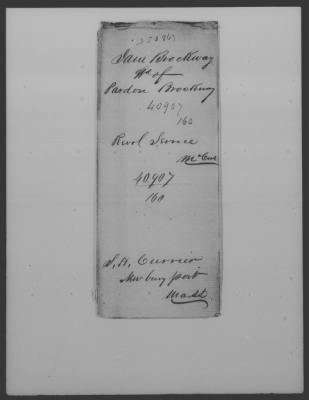 Brockway
Wd of
Pardon Brockway
40907
160
Revl Service
40907
160
S, H, Currier
Newbury port
Mass